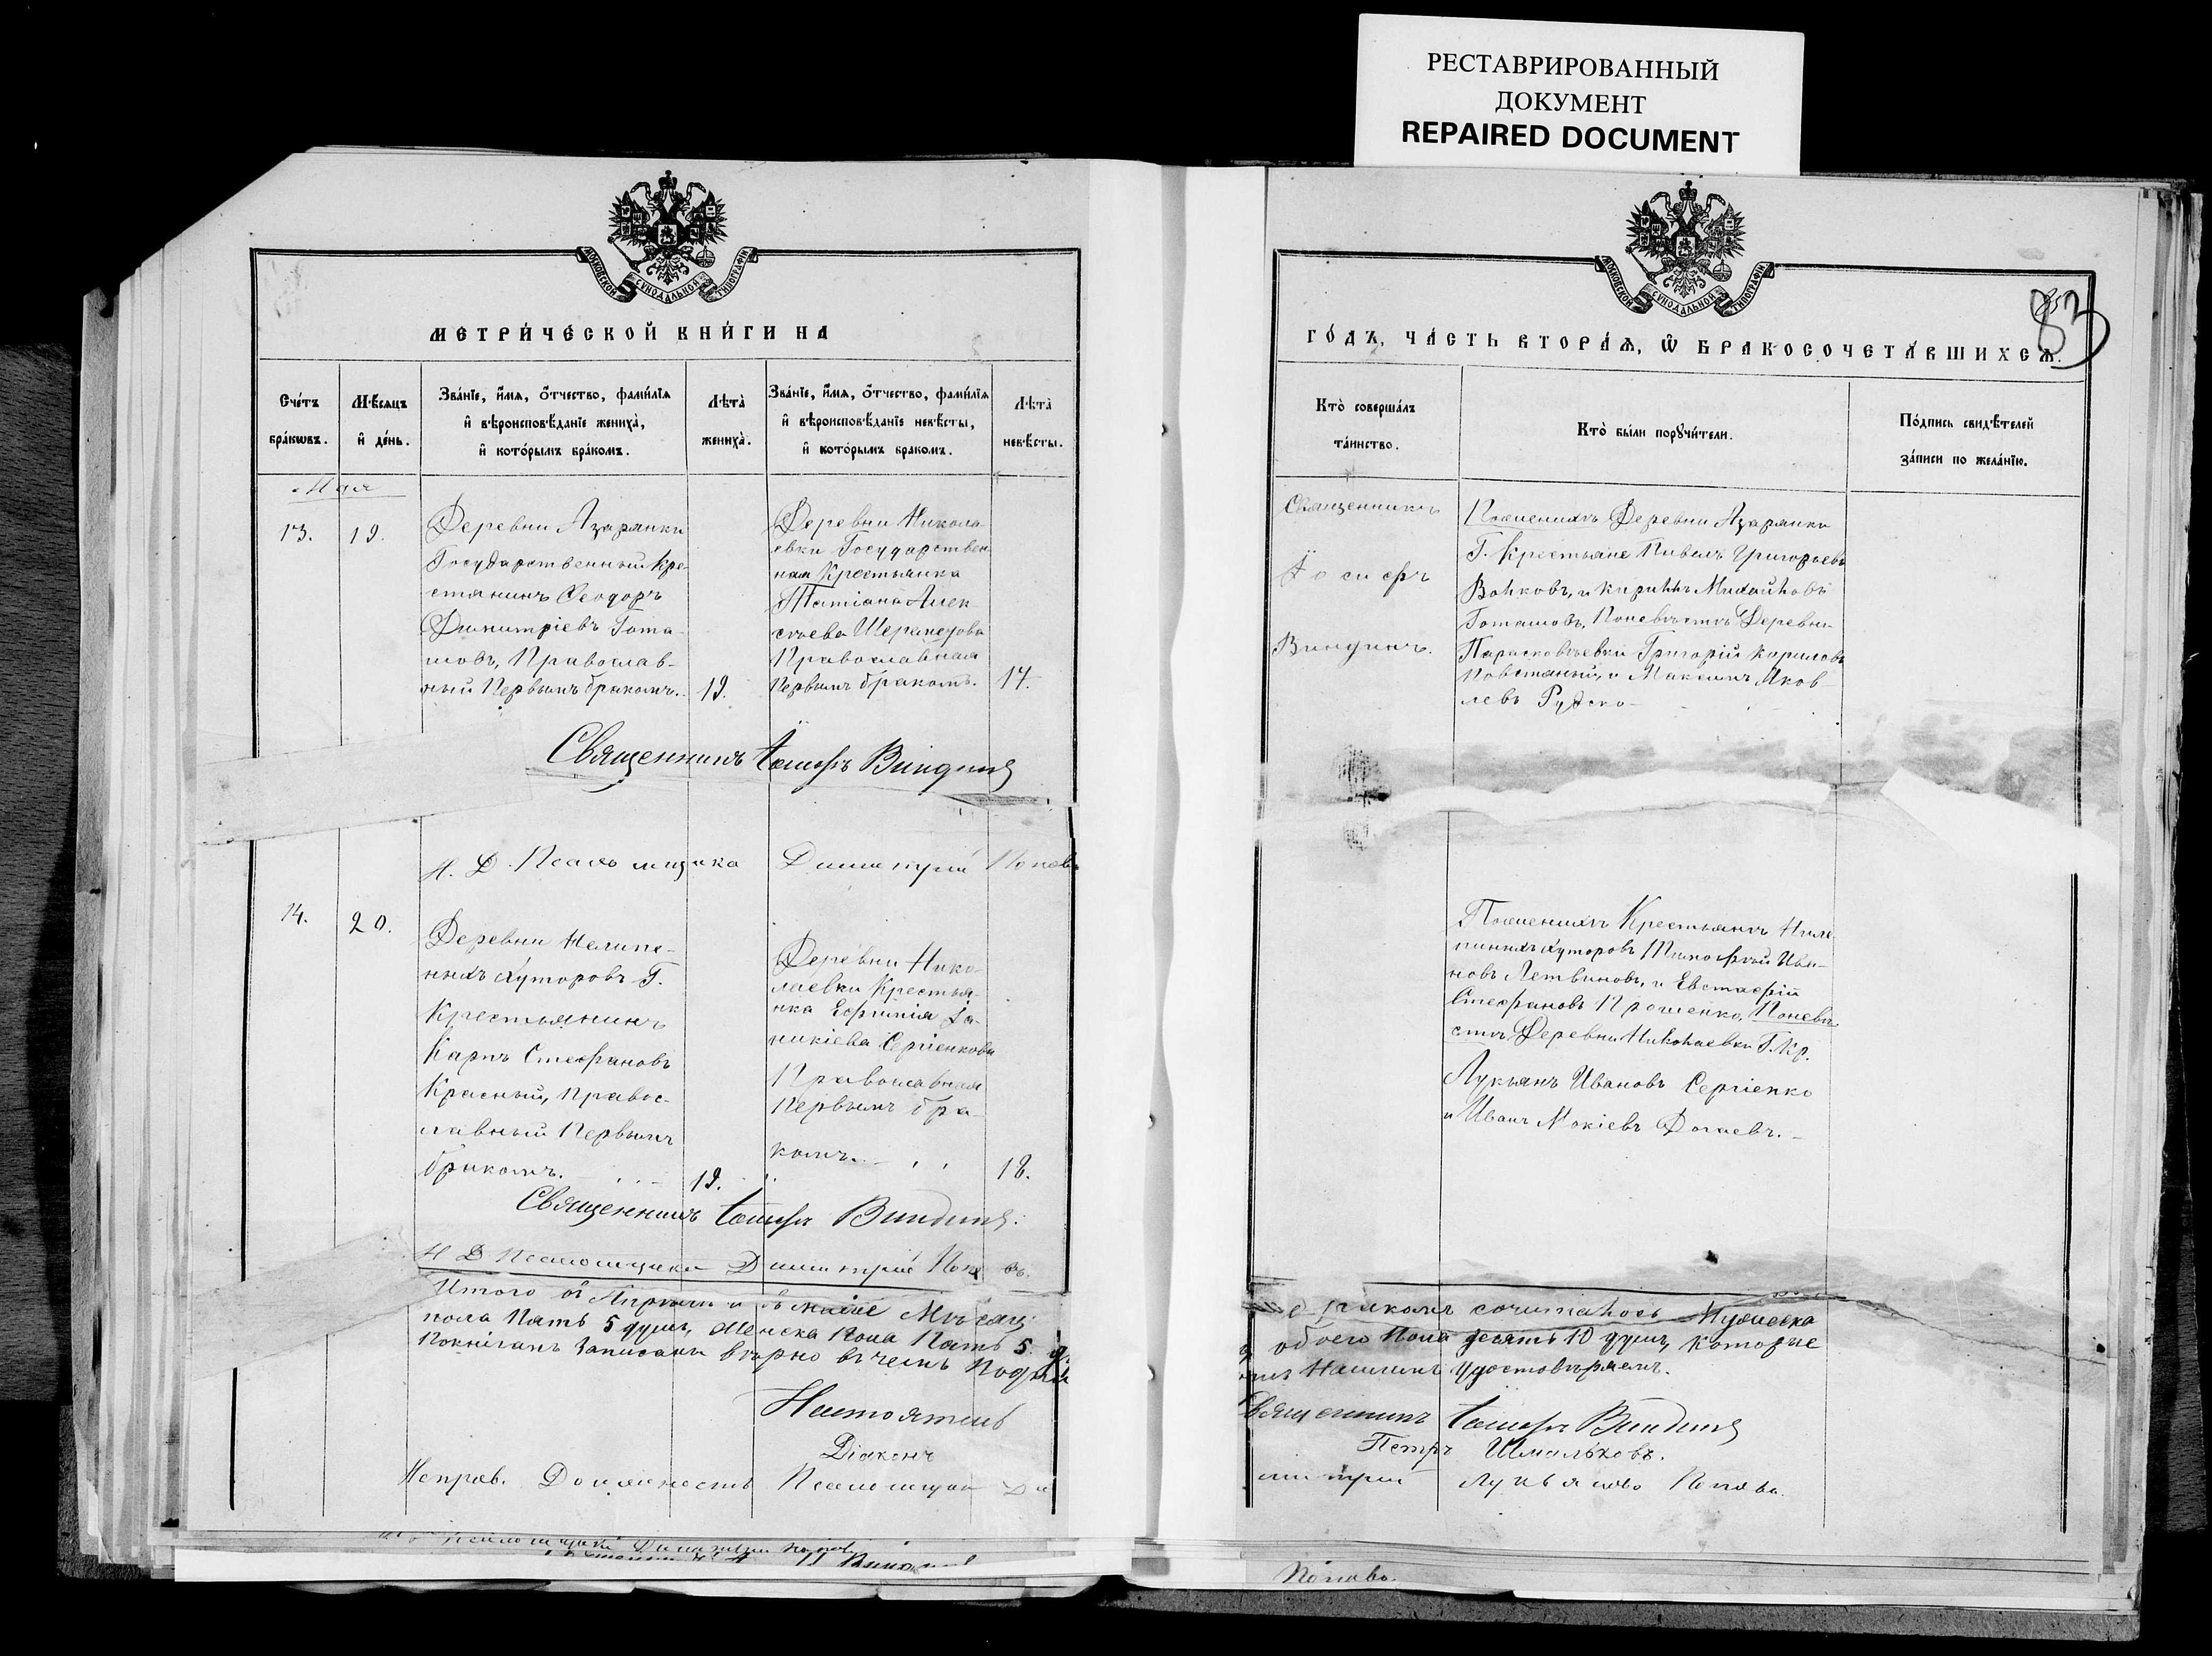 РЕСТАВРИРОВАННЫЙ
ДОКУМЕНТ
REPAIRED DOCUMENT
МОСКОВСКОЙ СѴНОДАЛЬНОЙ ТИПОГРАФІИ
МЕТРИ́ЧЕСКОЙ КНИ́ГИ НА
Сче́тъ
бра́кѡвъ.
Мѣ́сяцъ
и҆ де́нь.
Зва́нїе, и҆́мѧ, ѻ҆́тчество, фами́лїѧ
и҆ вѣроисповѣ́данїе жениха̀,
и҆ кото́рымъ бра́комъ.
Лѣта̀
жениха̀.
Зва́нїе, и҆́мѧ, ѻ҆́тчество, фами́лїѧ
и҆ вѣроисповѣ́данїе невѣ́сты,
и҆ кото́рымъ бракомъ.
Лѣта̀
невѣ́сты.
Мая
13.
19.
Деревни Азарянки
Государственный Кре-
стянинъ Ѳеодоръ
Димитріевъ Гота-
шовъ, Православ-
ный Первымъ бракомъ.
19.
Деревни Никола
евки Государствен
ная Крестьянка
Татіана Алек
сѣева Шереметова
Православная
Первымъ бракомъ.
17.
Священникъ Іосифъ Виндинъ
И. Д. Псаломщика Димитрій Поповъ
14.
20.
Деревни Нелипе-
ныхъ Хуторовъ Г.
Крестьянинъ
Карпъ Стефановъ
Красный, Правос-
лавный Первымъ
бракомъ.
19.
Деревни Нико-
лаевки Крестья-
нка Ефимія Іа-
никіева Сергіенкова
Православная
Первымъ бра-
комъ.
18.
Священникъ Іосифъ Виндинъ.
И Д Псаломщика Димитрій Поповъ.
Итого въ Апрѣли и въ маіе Мѣсяц
пола Пять 5 душъ, Женска Пола Пять 5. д.
Покнігамъ Записаны вѣрно въ чемъ Подпи
Настоятель
Діаконъ
Исправ. Должность Псаломщик Ди
МОСКОВСКОЙ СѴНОДАЛЬНОЙ ТИПОГРАФІИ
83
ГО́ДЪ, ЧА́СТЬ ВТОРА́Ѧ, Ѡ҆ БРАКОСОЧЕТА́ВШИХСѦ.
Кто̀ соверша́лъ
та́инство.
Кто̀ бы́ли порꙋчи́тели.
По́дпись свидѣ́телей
за́писи по жела́нїю.
Священникъ
Іосифъ
Виндинъ.
Поженихѣ Деревни Азарянки
Г. Крестьяне Павелъ Григорьевъ
Волковъ, и Кирилъ Михайловъ
Готашовъ, Поневѣстѣ Деревни
Парасковѣевки Григорій Кориловъ
Повстяный, и Максимъ Яков
левъ Рудско
Поженихѣ Крестьянъ Нили
пиныхъ Хуторовъ Тимофѣй Ива-
новъ Летвиновъ, и Евстафій
Стефановъ Прошенко, Поневѣ
стѣ Деревни Николаевки Г. Кр.
Лукьянъ Ивановъ Сергіенко
и Иванъ Мокіевъ Догаевъ.
бракомъ сочиталось Мужеска
обоего Пола десять 10 душъ, Которые
Нашимъ Удостовѣряемъ.
Священникъ Іосифъ Виндинъ
Петръ Шмальковъ.
митрій Лукьяновъ Поповъ.
Псаломщика Димитрій Поповъ
Поповъ.